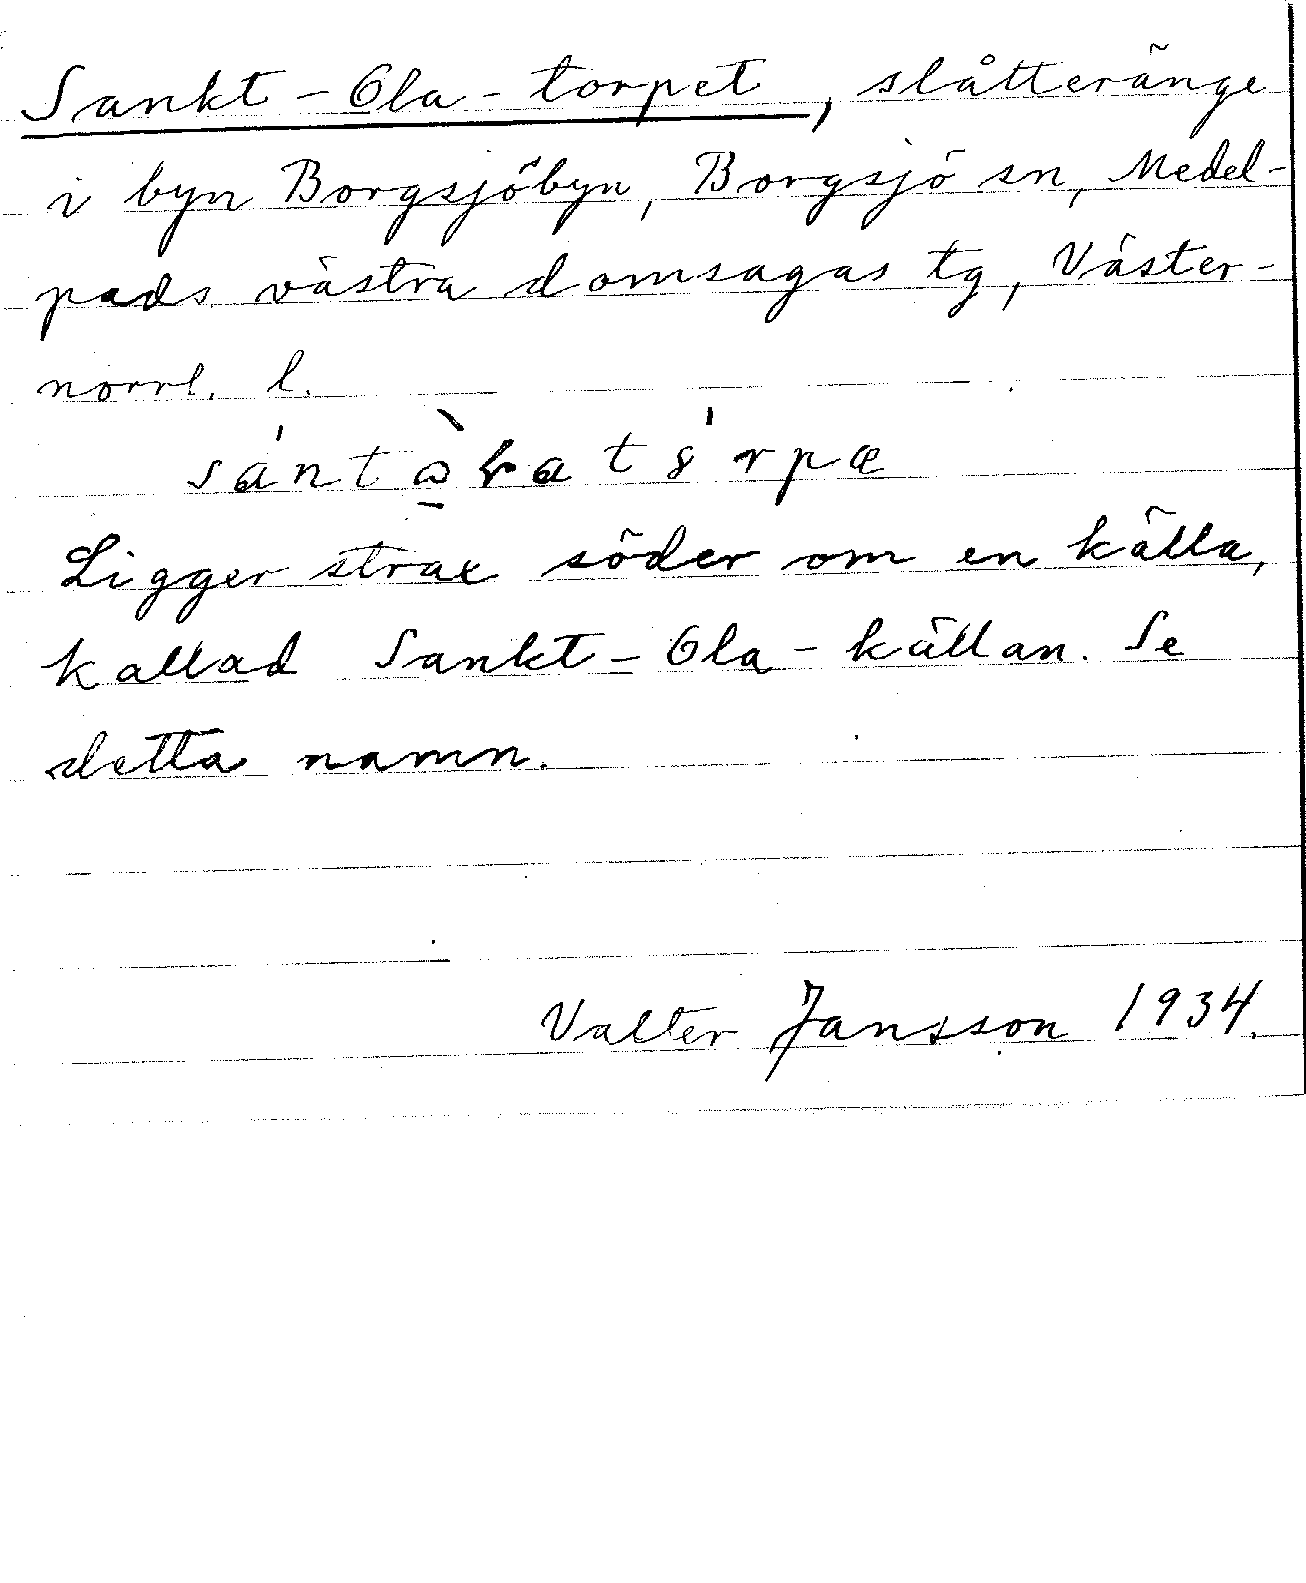 Sankt-Ola-torpet, slåtteränge
i byn Borgsjöbyn, Borgsjö sn, Medel-
pads västra domsagas tg, Väster-
norrl. l.
Ligger strax söder om en källa,
kallad Sankt-Ola-källan. Se
detta namn.
Valter Jansson 1934.